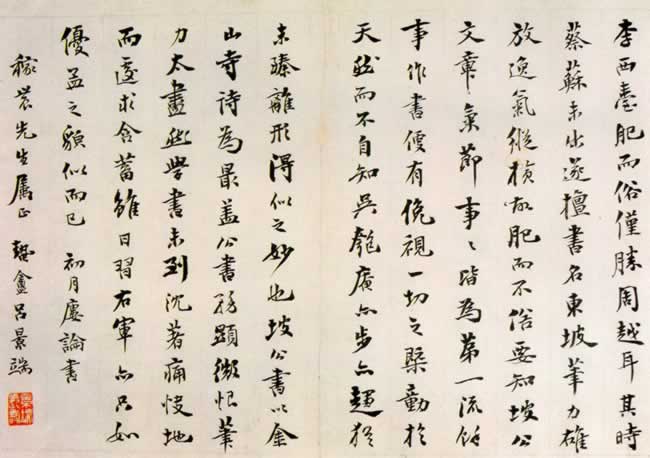 李西臺肥而俗僅勝周越耳其時
蔡蘇未出遂擅書名東坡筆力雄
放逸氣縱橫故肥而不俗要知坡公
文章氣節事〻皆為第一流餘
事作書便有俛視一切之槩動於
天然而不自知吳匏亦步亦趨猶
未臻離形得似之妙也坡公書以金
山寺詩為最蓋公書務顯微恨筆
力太盡然學書未到沈著痛快地
而遽求含蓄雖日習右軍亦只如
優孟之貌似而已 初月廔論書
稼農先生屬正 蟄盦呂景端